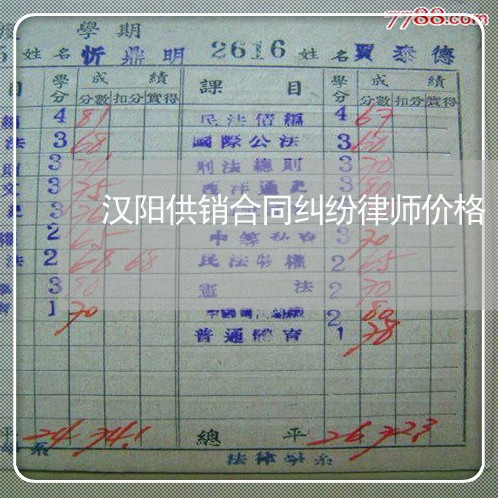 7788.com
學期
姓名忻鼎明 2616 姓名賈泰德
目 學分 成績 分數 扣分 實得 課目 學分 成績 分數 扣分 實得
4 81 民法債編 4 67
法 3 68 國際公法 3 60
3 刑法總則 3 70
3 75 西洋通史 3 80
汉阳供销合同纠纷律师价格
2 65 3 70
法 2 68 68 民法物權 2 65
3 80 憲法 2 70
1 70 2 80
普通體育 1 78
平 24 74.1 總平 26 72.3
系 法律學系